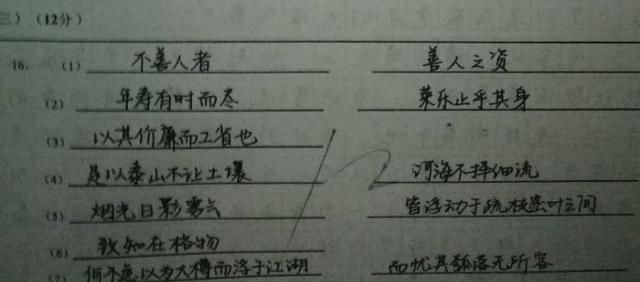 三）（12分）
16. （1） 不善人者 善人之资
（2） 年寿有时而尽 荣乐止乎其身
（3） 以其价廉而工省也
（4） 是以泰山不让土壤 河海不择细流
（5） 烟光日影雾气 皆浮动于疏枝密叶之间
（6） 致知在格物
（7） 何不虑以为大樽而浮于江湖 而忧其瓠落无所容
12